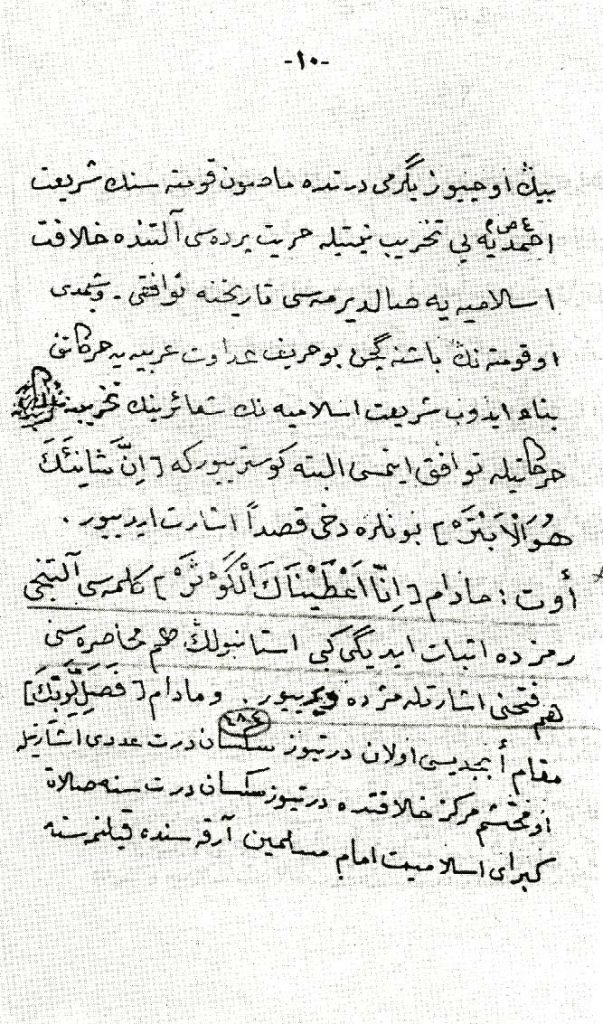 -١٠-
بيڭ اوچيوز يگرمی درتده ماصون قومته سنڭ شريعت
احمديه يی تخريب نيتيله حريت پرده سی آلتنده خلافت
اسلاميه يه صالديرمه سی تاريخنه توافقی. و شمدی
او قومته نڭ باشنه گچن بو حريف عداوت عربيه يه حركاتنی
بناء ايدوب شريعت اسلاميه نڭ شعائرينڭ تخريبنه
حركاتيله توافق ايتمسی البته گوستريیوركه [اِنَّ شَانِئَكَ
هُوَ الْاَبْتَرُ] بونلره دخی قصداً اشارت ايدييور.
أوت: مادام [اِنَّا اَعْطَيْنَاكَ الْكَوْثَرَ] كلمه سی آلتنجی
رمزده اثبات ايديگی گبی استانبولڭ هم محاصره سنی
هم فتحنی اشارتله مژده ويرييور. و مادام [فَصَلِّ لِرَبِّكَ]
مقام أبجديسی اولان درتيوز سكسان درت عددی اشارتيله
٤٨٤
او محتشم مركز خلافتده درتيوز سكسان درت سنه صلاة
كبرای اسلاميت امام مسلمين آرقه سنده قيلنمه سنه